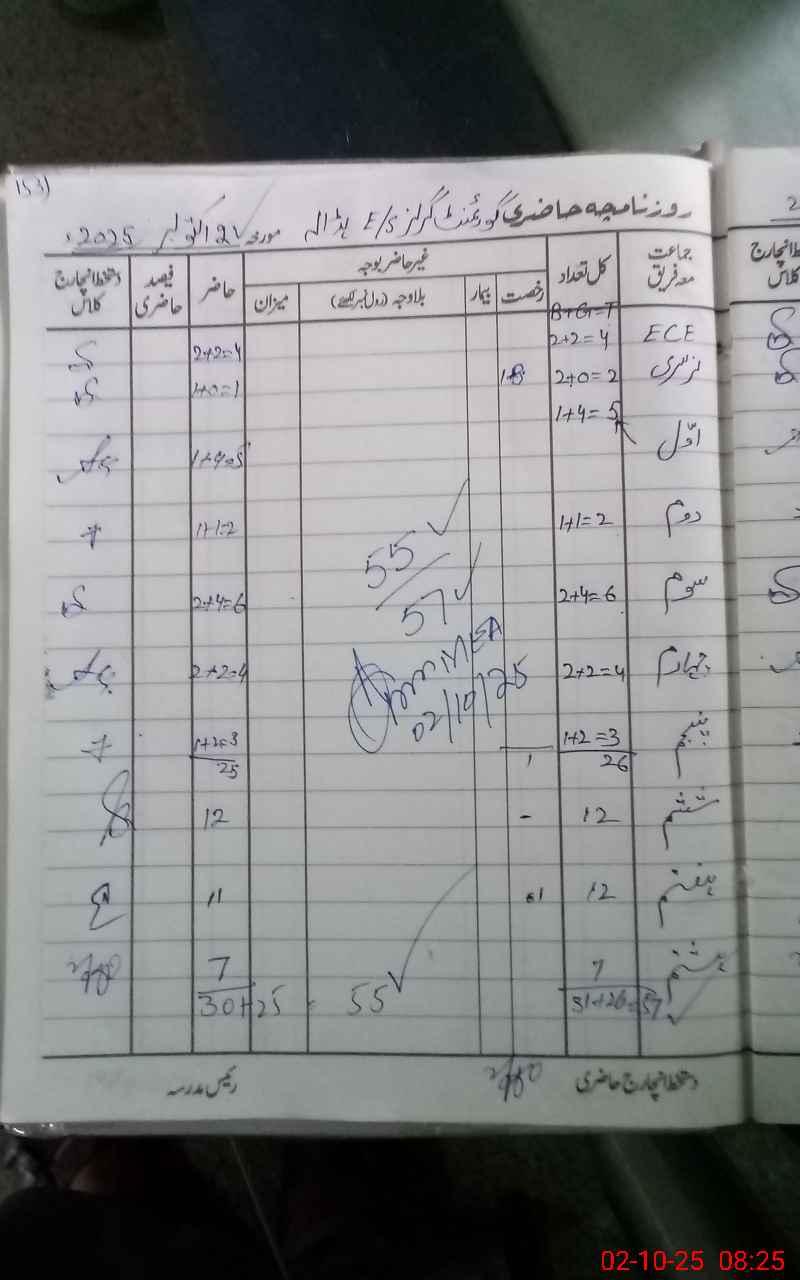 153)
روزنامچہ حاضری گورنمنٹ گرلز E/S ہڈالہ مورخہ 2 اکتوبر 2025ء
جماعت معہ فریق کل تعداد غیر حاضر بوجہ حاضر فیصد حاضری دستخط انچارج کلاس
رخصت بیمار بلاوجہ (رول نمبر لکھیے) میزان
B+G=T
ECE 2+2=4 2+2=4
نرسری 2+0=2 1+0=1
اوّل 1+4=5 1+4=5
دوم 1+1=2 1+1=2
55
57
سوم 2+4=6 2+4=6
چہارم 2+2=4 2+2=4
MEA
02/10/25
پنجم 1+2=3 1+2=3
26 1 25
ششم 12 - 12
ہفتم 12 01 11
ہشتم 7 7
31+26=57 30+25 = 55
دستخط انچارج حاضری رئیس مدرسہ
2
دستخط انچارج کلاس
02-10-25 08:25